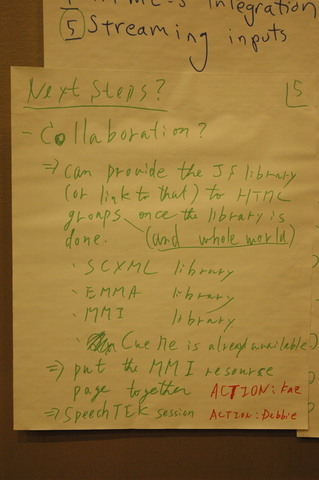 HTML-5 integration
5 Streaming inputs
Next Steps?
5
- Collaboration?
⇒ can provide the JS library
(or link to that) to HTML
groups, once the library is
done. (and whole world)
· SCXML library
· EMMA library
· MMI library
· Cue Me is already available.)
⇒ put the MMI resource
page together ACTION: Kaz
⇒ SpeechTEK session ACTION: Debbie